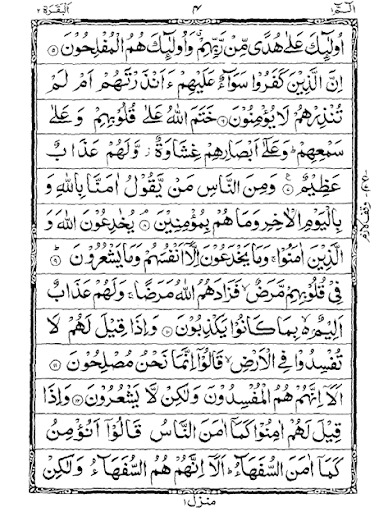 الٓمّٓ ١
٤
البقرة ٢
اُولٰٓئِكَ عَلٰى هُدًى مِّنْ رَّبِّهِمْ ۙ وَاُولٰٓئِكَ هُمُ الْمُفْلِحُوْنَ ۝٥
اِنَّ الَّذِيْنَ كَفَرُوْا سَوَآءٌ عَلَيْهِمْ ءَاَنْذَرْتَهُمْ اَمْ لَمْ
تُنْذِرْهُمْ لَا يُؤْمِنُوْنَ ۝٦ خَتَمَ اللّٰهُ عَلٰى قُلُوْبِهِمْ وَعَلٰى
سَمْعِهِمْ ؕ وَعَلٰٓى اَبْصَارِهِمْ غِشَاوَةٌ ؗ وَّلَهُمْ عَذَابٌ
عَظِيْمٌ ۝٧ وَمِنَ النَّاسِ مَنْ يَّقُوْلُ اٰمَنَّا بِاللّٰهِ وَ
بِالْيَوْمِ الْاٰخِرِ وَمَا هُمْ بِمُؤْمِنِيْنَ ۝٨ يُخٰدِعُوْنَ اللّٰهَ وَ
الَّذِيْنَ اٰمَنُوْا ۚ وَمَا يَخْدَعُوْنَ اِلَّآ اَنْفُسَهُمْ وَمَا يَشْعُرُوْنَ ۝٩
فِيْ قُلُوْبِهِمْ مَّرَضٌ ۙ فَزَادَهُمُ اللّٰهُ مَرَضًا ۚ وَلَهُمْ عَذَابٌ
اَلِيْمٌۢ ۙ بِمَا كَانُوْا يَكْذِبُوْنَ ۝١٠ وَاِذَا قِيْلَ لَهُمْ لَا
تُفْسِدُوْا فِي الْاَرْضِ ۙ قَالُوْٓا اِنَّمَا نَحْنُ مُصْلِحُوْنَ ۝١١
اَلَآ اِنَّهُمْ هُمُ الْمُفْسِدُوْنَ وَلٰكِنْ لَّا يَشْعُرُوْنَ ۝١٢ وَاِذَا
قِيْلَ لَهُمْ اٰمِنُوْا كَمَآ اٰمَنَ النَّاسُ قَالُوْٓا اَنُؤْمِنُ
كَمَآ اٰمَنَ السُّفَهَآءُ ؕ اَلَآ اِنَّهُمْ هُمُ السُّفَهَآءُ وَلٰكِنْ
وقف لازم
منزل ١